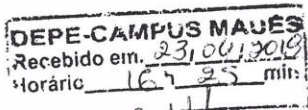 DEPE-CAMPUS MAUÉS
Recebido em. 23, 04, 2019
Horário 16 h 25 min: